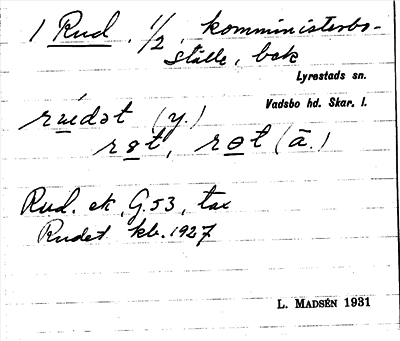 1 Rud. 1/2, komministerbo-
ställe, bck
Lyrestads sn.
Vadsbo hd. Skar. l.
(y.)
(ä.)
Rud. ek, G.53, tax
Rudet kb. 1927
L. MADSÉN 1931